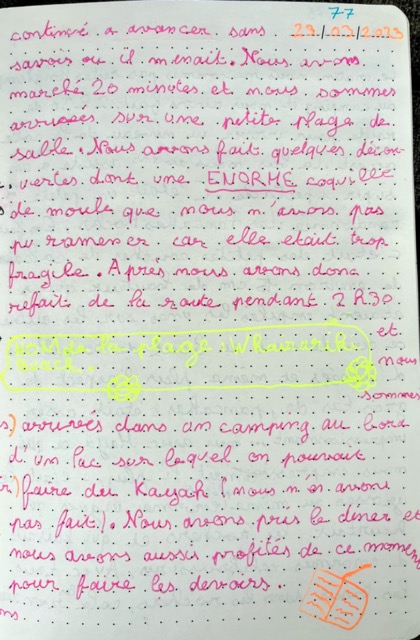 77
29/07/2023
continué a avancer sans
savoir ou il menait. Nous avons
marché 20 minutes et nous sommes
arrivés sur une petite plage de
sable. Nous avons fait quelques décou-
vertes dont une ENORME coquille
de moule que nous n'avons pas
pu ramener car elle etait trop
fragile. Après nous avons donc
refait de la route pendant 2 h30
et
nous
sommes
Nom de la plage : Whairiki
Beach.
arrivés dans un camping au bord
d'un lac sur lequel on pouvait
faire du Kayak (nous n'en avons
pas fait). Nous avons pris le diner et
nous avons aussi profités de ce moment
pour faire les devoirs.